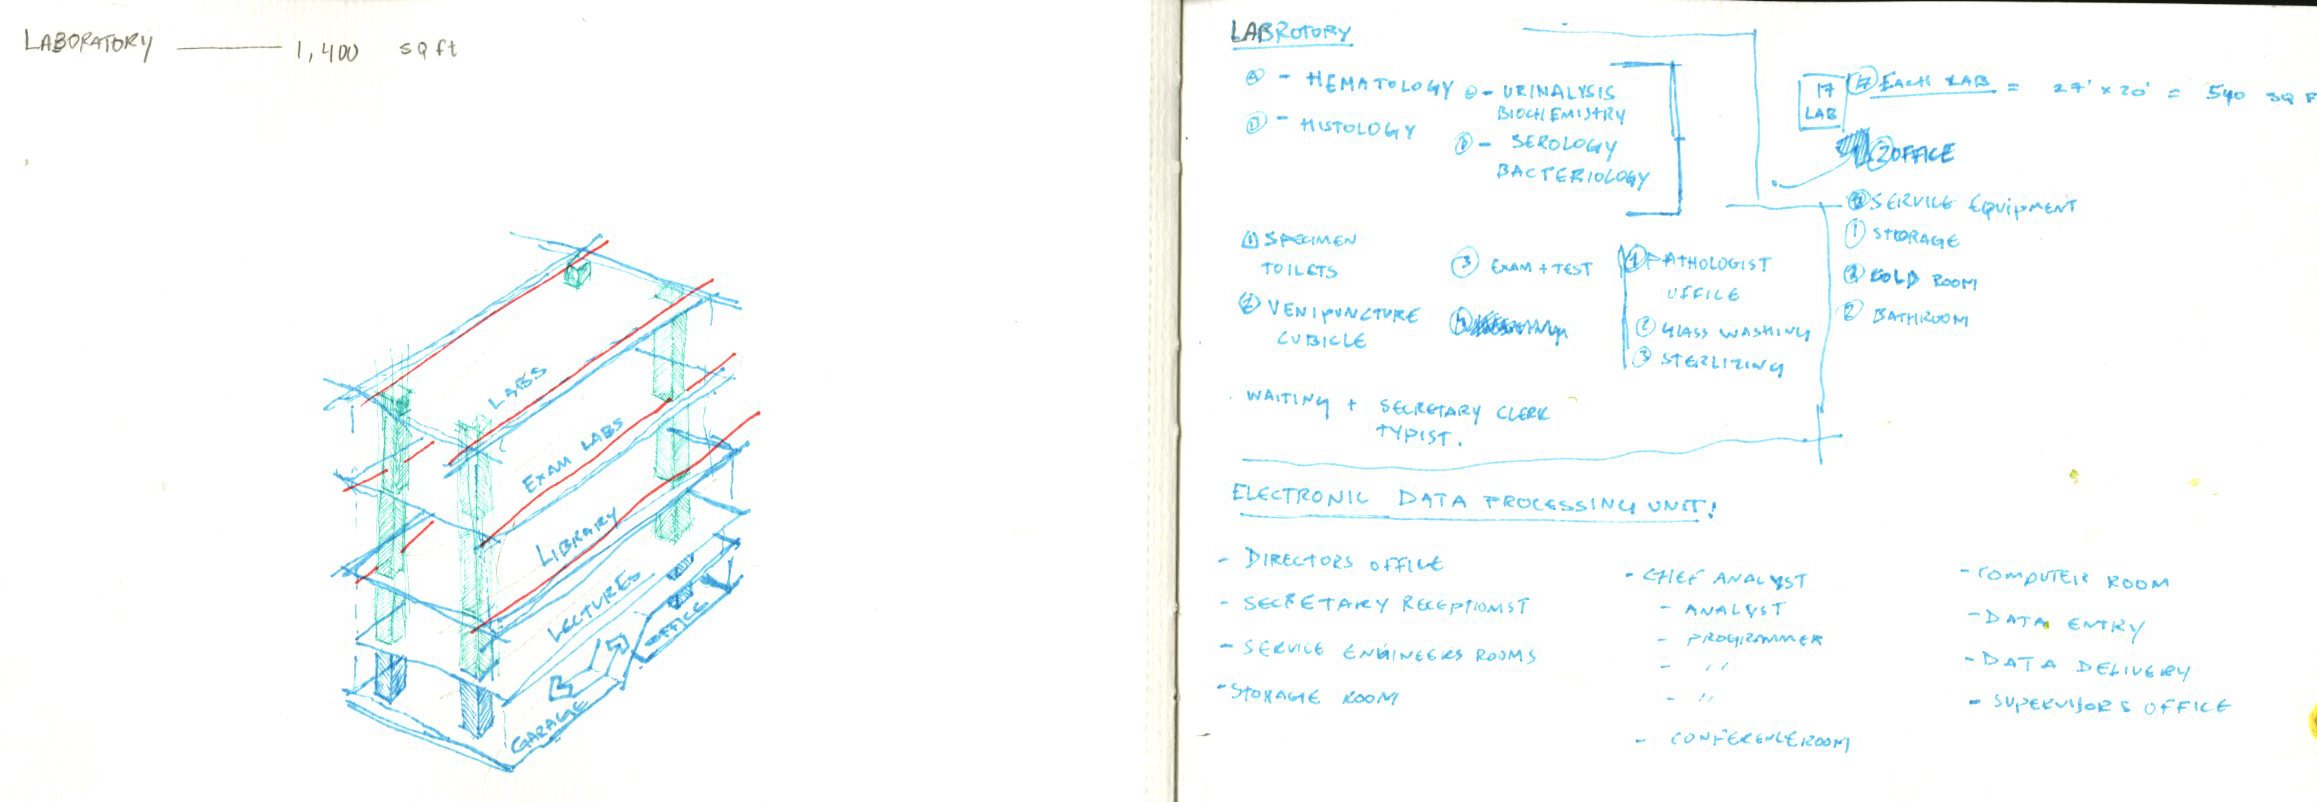 LABORATORY ——— 1,400 sq ft
LABS
EXAM LABS
LIBRARY
LECTURES
OFFICE
GARAGE
LABROTORY
- HEMATOLOGY
- HISTOLOGY
- URINALYSIS
BIOCHEMISTRY
- SEROLOGY
BACTERIOLOGY
17
LAB
EACH LAB = 27' x 20' = 540 SQ F
2 OFFICE
SERVICE EQUIPMENT
1 STORAGE
2 COLD ROOM
2 BATHROOM
1 SPECIMEN
TOILETS
2 VENIPUNCTURE
CUBICLE
3 EXAM + TEST
4
1 PATHOLOGIST
OFFICE
2 GLASS WASHING
3 STERLIZING
WAITING + SECRETARY CLERK
TYPIST.
ELECTRONIC DATA PROCESSING UNIT!
- DIRECTORS OFFICE
- SECRETARY RECEPTIONIST
- SERVICE ENGINEERS ROOMS
- STORAGE ROOM
- CHIEF ANALYST
- ANALYST
- PROGRAMMER
- ''
- ''
- CONFERENCE ROOM
- COMPUTER ROOM
- DATA ENTRY
- DATA DELIVERY
- SUPERVISORS OFFICE